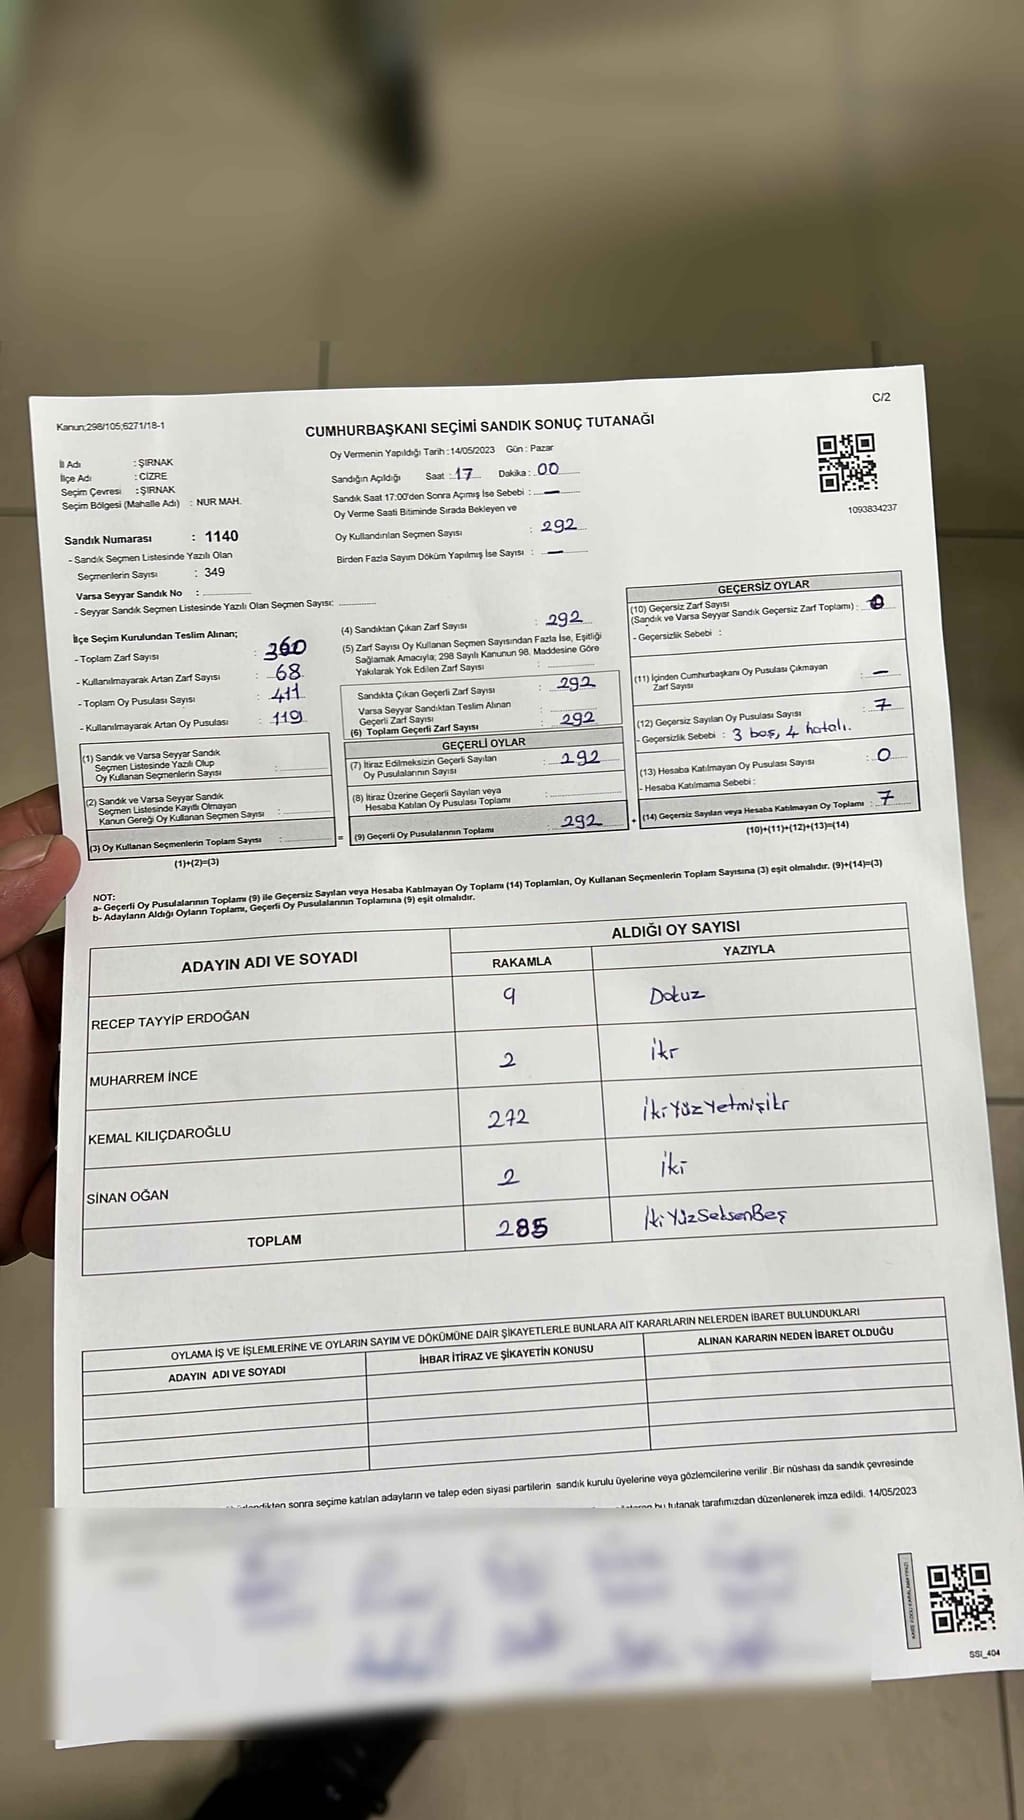 C/2
Kanun;298/105;6271/18-1
CUMHURBAŞKANI SEÇİMİ SANDIK SONUÇ TUTANAĞI
İl Adı : ŞIRNAK
İlçe Adı : CİZRE
Seçim Çevresi : ŞIRNAK
Seçim Bölgesi (Mahalle Adı) : NUR MAH.
Sandık Numarası : 1140
- Sandık Seçmen Listesinde Yazılı Olan
Seçmenlerin Sayısı : 349
Varsa Seyyar Sandık No :
- Seyyar Sandık Seçmen Listesinde Yazılı Olan Seçmen Sayısı:
Oy Vermenin Yapıldığı Tarih : 14/05/2023 Gün : Pazar
Sandığın Açıldığı Saat : 17 Dakika : 00
Sandık Saat 17:00'den Sonra Açımış İse Sebebi : —
Oy Verme Saati Bitiminde Sırada Bekleyen ve
Oy Kullandırılan Seçmen Sayısı : 292
Birden Fazla Sayım Döküm Yapılmış İse Sayısı : —
1093834237
İlçe Seçim Kurulundan Teslim Alınan;
- Toplam Zarf Sayısı : 360
- Kullanılmayarak Artan Zarf Sayısı : 68
- Toplam Oy Pusulası Sayısı : 411
- Kullanılmayarak Artan Oy Pusulası : 119
(1) Sandık ve Varsa Seyyar Sandık
Seçmen Listesinde Yazılı Olup
Oy Kullanan Seçmenlerin Sayısı :
(2) Sandık ve Varsa Seyyar Sandık
Seçmen Listesinde Kayıtlı Olmayan
Kanun Gereği Oy Kullanan Seçmen Sayısı :
(3) Oy Kullanan Seçmenlerin Toplam Sayısı : =
(1)+(2)=(3)
(4) Sandıktan Çıkan Zarf Sayısı : 292
(5) Zarf Sayısı Oy Kullanan Seçmen Sayısından Fazla İse, Eşitliği
Sağlamak Amacıyla; 298 Sayılı Kanunun 98. Maddesine Göre
Yakılarak Yok Edilen Zarf Sayısı :
Sandıkta Çıkan Geçerli Zarf Sayısı : 292
Varsa Seyyar Sandıktan Teslim Alınan
Geçerli Zarf Sayısı :
(6) Toplam Geçerli Zarf Sayısı : 292
GEÇERLİ OYLAR
(7) İtiraz Edilmeksizin Geçerli Sayılan
Oy Pusulalarının Sayısı : 292
(8) İtiraz Üzerine Geçerli Sayılan veya
Hesaba Katılan Oy Pusulası Toplamı :
(9) Geçerli Oy Pusulalarının Toplamı : 292 +
GEÇERSİZ OYLAR
(10) Geçersiz Zarf Sayısı
(Sandık ve Varsa Seyyar Sandık Geçersiz Zarf Toplamı) : 0
- Geçersizlik Sebebi :
(11) İçinden Cumhurbaşkanı Oy Pusulası Çıkmayan
Zarf Sayısı : —
(12) Geçersiz Sayılan Oy Pusulası Sayısı : 7
- Geçersizlik Sebebi : 3 boş, 4 hatalı.
(13) Hesaba Katılmayan Oy Pusulası Sayısı : 0
- Hesaba Katılmama Sebebi :
(14) Geçersiz Sayılan veya Hesaba Katılmayan Oy Toplamı : 7
(10)+(11)+(12)+(13)=(14)
NOT:
a- Geçerli Oy Pusulalarının Toplamı (9) ile Geçersiz Sayılan veya Hesaba Katılmayan Oy Toplamı (14) Toplamları, Oy Kullanan Seçmenlerin Toplam Sayısına (3) eşit olmalıdır. (9)+(14)=(3)
b- Adayların Aldığı Oyların Toplamı, Geçerli Oy Pusulalarının Toplamına (9) eşit olmalıdır.
ADAYIN ADI VE SOYADI
ALDIĞI OY SAYISI
RAKAMLA YAZIYLA
RECEP TAYYİP ERDOĞAN 9 Dokuz
MUHARREM İNCE 2 İki
KEMAL KILIÇDAROĞLU 272 İkiYüzYetmişİki
SİNAN OĞAN 2 İki
TOPLAM 285 İkiYüzSeksenBeş
OYLAMA İŞ VE İŞLEMLERİNE VE OYLARIN SAYIM VE DÖKÜMÜNE DAİR ŞİKAYETLERLE BUNLARA AİT KARARLARIN NELERDEN İBARET BULUNDUKLARI
ADAYIN ADI VE SOYADI İHBAR İTİRAZ VE ŞİKAYETİN KONUSU ALINAN KARARIN NEDEN İBARET OLDUĞU
sonra seçime katılan adayların ve talep eden siyasi partilerin sandık kurulu üyelerine veya gözlemcilerine verilir .Bir nüshası da sandık çevresinde
bu tutanak tarafımızdan düzenlenerek imza edildi. 14/05/2023
SSI_404